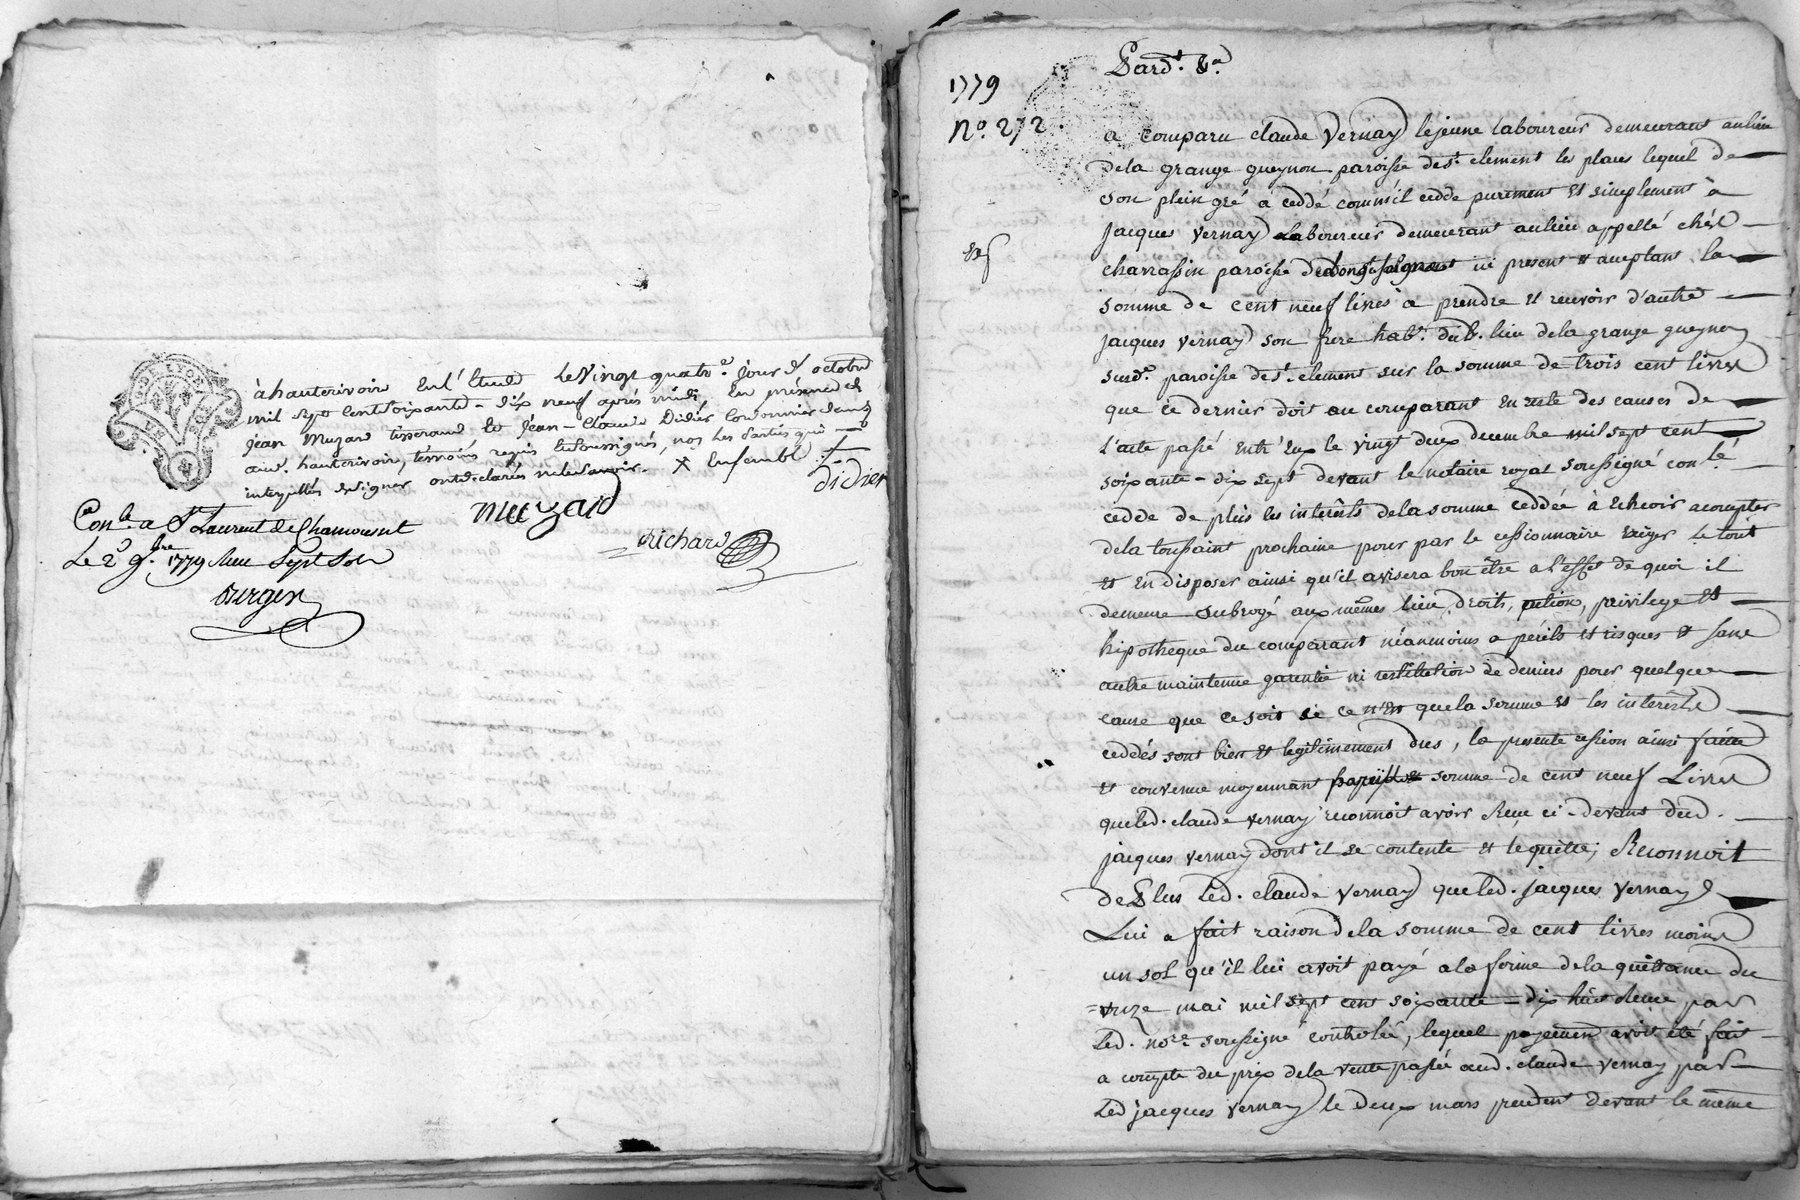 DE LYON
à hauterivoire en l'Etude le vingt quatre. jour d'octobre
mil sept cent soixante - dix neuf après midi, en présence de
jean Muzard tisserand et jean - Claude Didier cordonnier dem.
aud. hauterivoire, témoins requis et soussignés, non les parties qui
interpellés de signer ont déclarés ne le savoir. X Ensemble
didier
Muzard
Richard
Con.lé a St Laurent de Chamousset
Le 2 9.bre 1779 Reçu Sept Sols
1779
Pard.t
No. 272
a comparu claude Vernay le jeune laboureur demeurant au lieu
de la grange gueynon paroisse de st. clement les places lequel de
son plein gré a ceddé comm'il cedde purement et simplement à
jacques vernay laboureur demeurant au lieu appellé chés
charrassin paroisse de ici present et acceptant la
somme de cent neuf livres a prendre et recevoir d'autre
jacques vernay son frere hab.t dud. lieu de la grange gueynon
surd.e paroisse de st. clement sur la somme de trois cent livres
que ce dernier doit au comparant en reste des causes de
l'acte passé entr'eux le vingt deux decembre mil sept cent
soixante - dix sept devant le notaire royal soussigné con.lé
cedde de plus les interêts de la somme ceddée à echeoir a compter
de la toussaint prochaine pour par le cessionnaire exiger le tout
et en disposer ainsi qu'il avisera bon être a l'effet de quoi il
demeure subrogé aux mêmes lieu, droits, action, privilege et
hipotheque du comparant néanmoins a périls et risques et sans
autre maintenue garentie ni restitution de deniers pour quelque
cause que ce soit si ce n'est que la somme et les interêts
ceddés sont bien et legitimement dus, la presente cession ainsi faitte
et convenue moyennant pareille somme de cent neuf Livres
que led. claude vernay reconnoit avoir Reçue ci - devant dud.
jacques vernay dont il se contente et le quitte; Reconnoit
de Plus led. claude vernay que led. jacques vernay
Lui a fait raison de la somme de cent livres moins
un sol qu'il lui avoit payé a la forme de la quittance du
onze mai mil sept cent soixante - dix huit par
led. no.re soussigné controlée, lequel payement avoit été fait
a compte du prix de la vente passée aud. claude vernay par
led jacques vernay le deux mars precedent devant le même